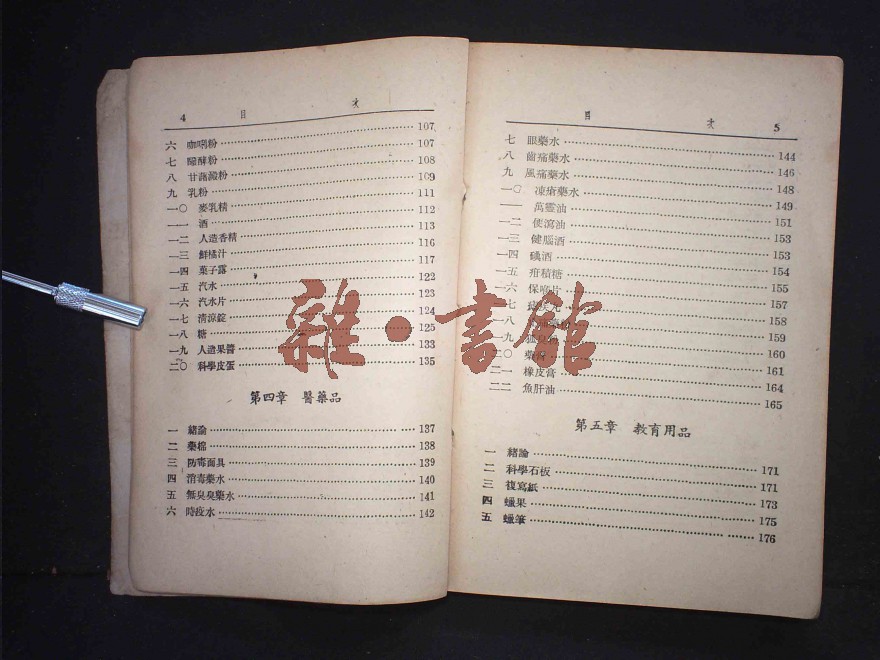 4 目 次
六 咖喱粉 107
七 醱酵粉 107
八 甘藷澱粉 108
九 乳粉 109
一〇 麥乳精 111
一一 酒 112
一二 人造香精 113
一三 鮮橘汁 116
一四 菓子露 117
一五 汽水 122
一六 汽水片 123
一七 清涼錠 124
一八 糖 125
一九 人造果醬 133
二〇 科學皮蛋 135
第四章 醫藥品
一 緒論 137
二 藥棉 138
三 防毒面具 139
四 消毒藥水 140
五 無臭臭藥水 141
六 時疫水 142
目 次 5
七 眼藥水 144
八 齒痛藥水 146
九 風痛藥水 148
一〇 凍瘡藥水 149
一一 萬靈油 151
一二 便瀉油 153
一三 健腦酒 153
一四 碘酒 154
一五 疳積糖 155
一六 保喉片 157
一七 158
一八 159
一九 160
二〇 161
二一 橡皮膏 164
二二 魚肝油 165
第五章 教育用品
一 緒論 171
二 科學石板 171
三 複寫紙 173
四 蠟果 175
五 蠟筆 176
雜·書館